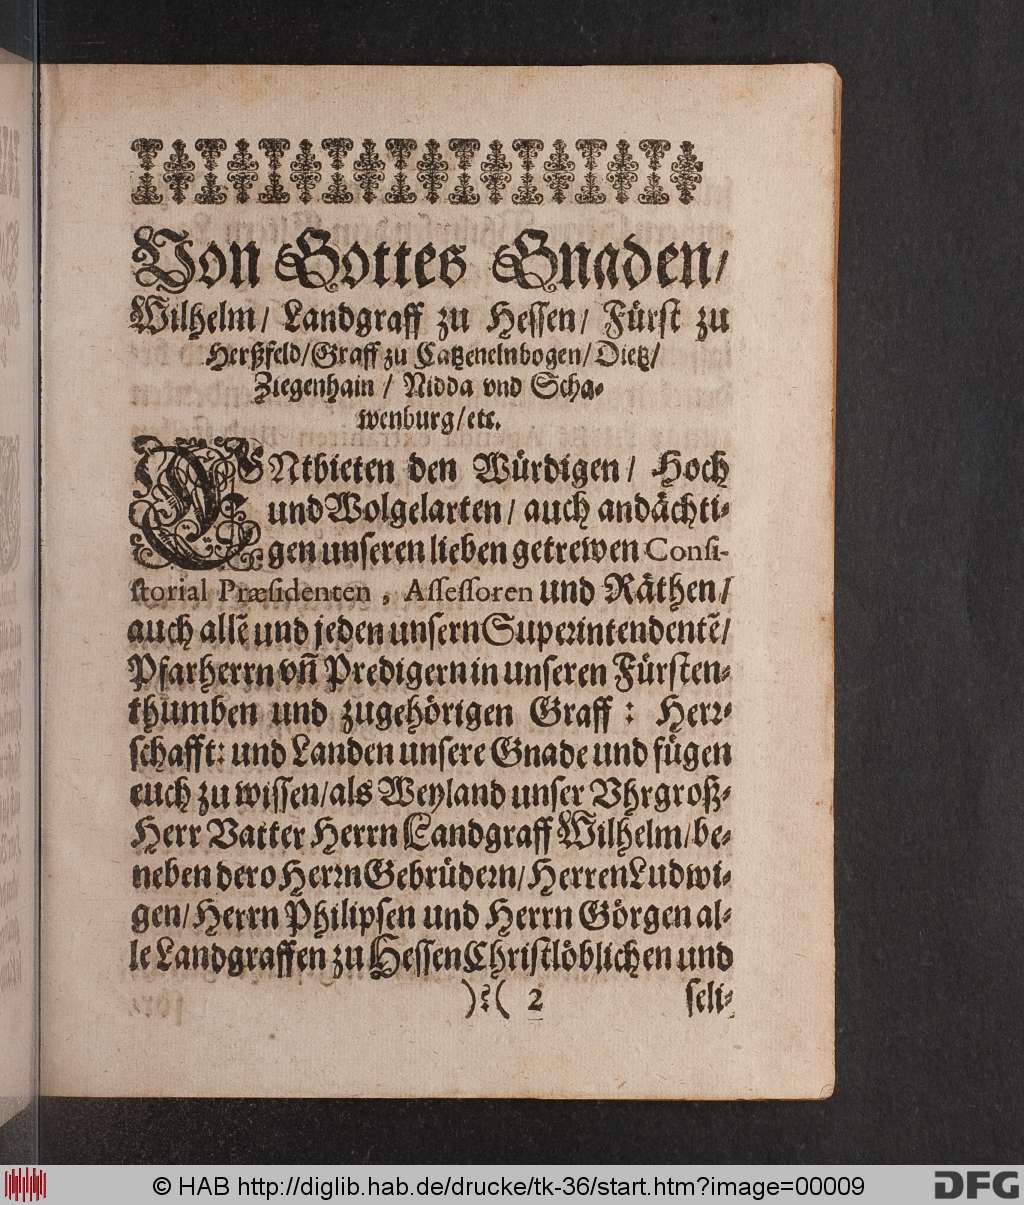 Von Gottes Gnaden/
Wilhelm/ Landgraff zu Hessen/ Fürst zu
Herßfeld/Graff zu Catzenelnbogen/Dietz/
Ziegenhain/ Nidda vnd Scha-
wenburg/etc.
ENtbieten den Würdigen/ Hoch
und Wolgelarten/ auch andächti-
gen unseren lieben getrewen Consi-
storial Præsidenten, Assessoren und Räthen/
auch allẽ und jeden unsern Superintendentẽ/
Pfarherrn vñ Predigern in unseren Fürsten-
thumben und zugehörigen Graff: Herr-
schafft: und Landen unsere Gnade und fügen
euch zu wissen/als Weyland unser Vhrgroß-
Herr Vatter Herrn Landgraff Wilhelm/be-
neben dero Herrn Gebrüdern/Herren Ludwi-
gen/Herrn Philipsen und Herrn Görgen al-
le Landgraffen zu Hessen Christlöblichen und
):( 2 seli-
© HAB http://diglib.hab.de/drucke/tk-36/start.htm?image=00009
DFG